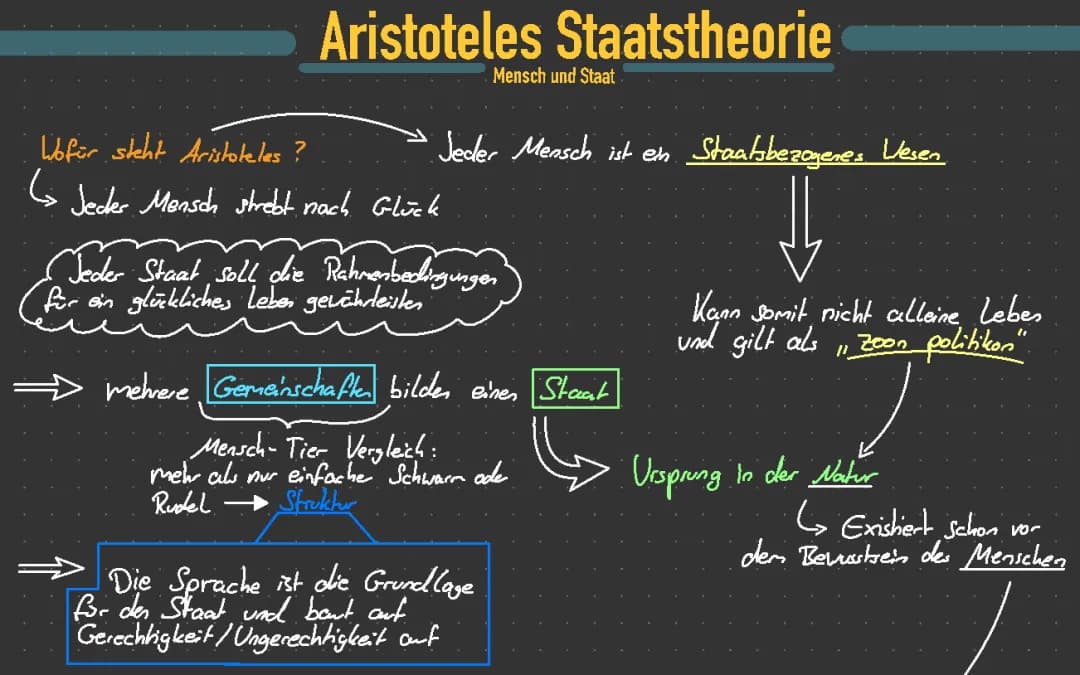 Aristoteles Staatstheorie
Mensch und Staat
Wofür steht Aristoteles ?
Jeder Mensch ist ein Staatsbezogenes Wesen
Jeder Mensch strebt nach Glück
Jeder Staat soll die Rahmenbedingungen
für ein glückliches Leben gewährleisten
Kann somit nicht alleine Leben
und gilt als „Zoon politikon"
mehrere Gemeinschaften bilden einen Staat
Mensch-Tier Vergleich:
mehr als nur einfache Schwarm oder
Rudel → Struktur
Ursprung in der Natur
Existiert schon vor
dem Bewusstsein des Menschen
Die Sprache ist die Grundlage
für den Staat und baut auf
Gerechtigkeit/Ungerechtigkeit auf